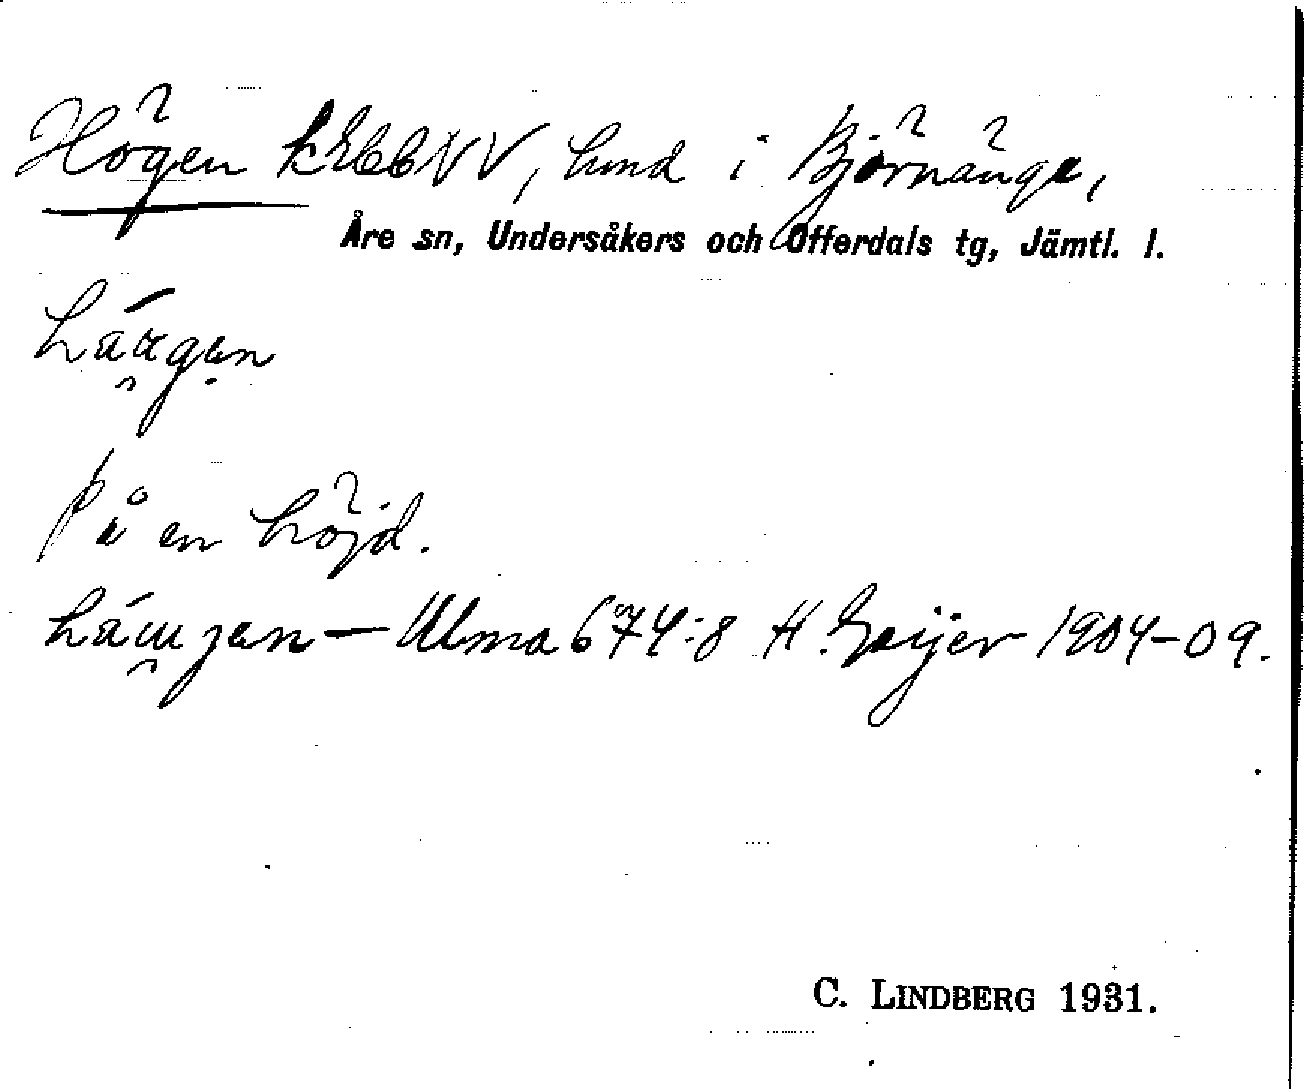 Högen kEbbNV, hmd i Björnänge,
Åre sn, Undersåkers och Offerdals tg, Jämtl. l.
På en höjd.
— Ulma 674:8 H. Geijer 1904-09.
C. LINDBERG 1931.